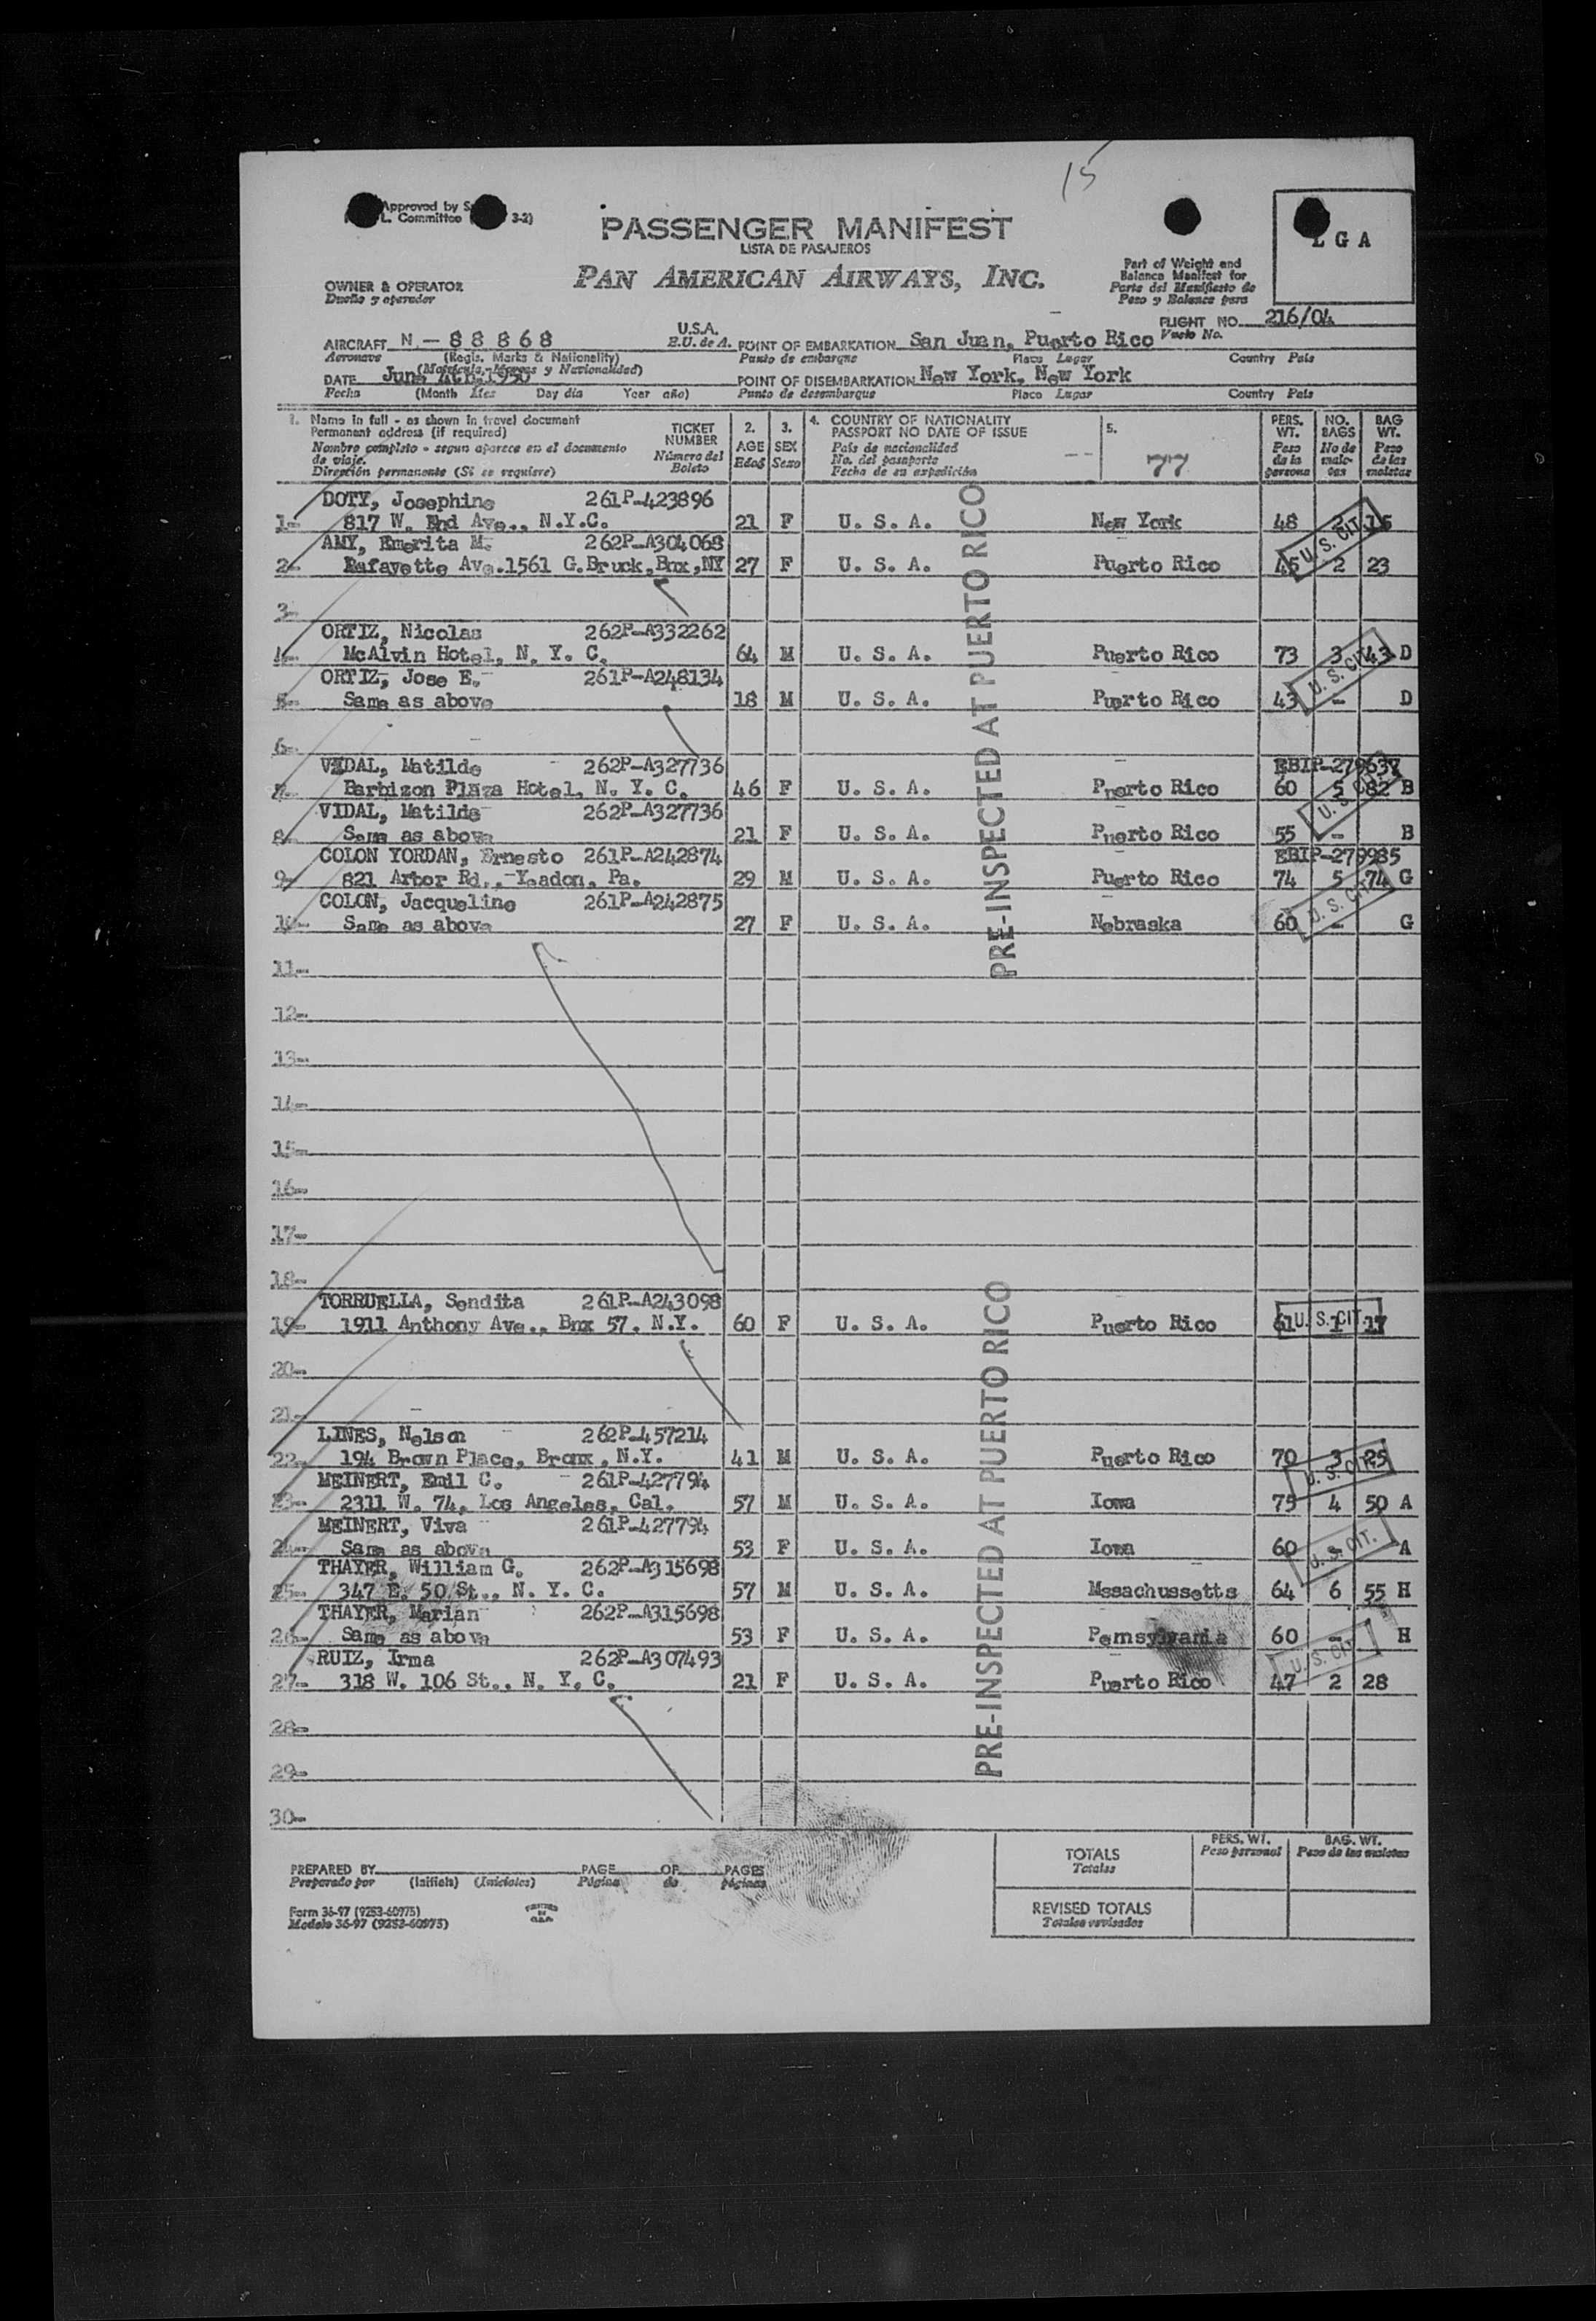 15
Approved by
L. Committee 3-2)
PASSENGER MANIFEST
LISTA DE PASAJEROS
L G A
PAN AMERICAN AIRWAYS, INC.
Part of Weight and
Balance Manifest for
Parte del Manifiesto de
Peso y Balance para
OWNER & OPERATOR
Dueño y operador
FLIGHT NO. 216/04
Vuelo No.
AIRCRAFT N.-88868 U.S.A. POINT OF EMBARKATION San Juan, Puerto Rico
Aeronave (Regis. Marks & Nationality) E.U. de A. Punto de embarque Place Lugar Country País
(Matricula, Marcas y Nacionalidad)
DATE June 4th, 1950 POINT OF DISEMBARKATION New York, New York
Fecha (Month Mes Day día Year año) Punto de desembarque Place Lugar Country País
1. Name in full - as shown in travel document
Permanent address (if required)
Nombre completo - segun aparece en el documento
de viaje.
Dirección permanente (Si se requiere)
TICKET
NUMBER
Número del
Boleto
2.
AGE
Edad
3.
SEX
Sexo
4. COUNTRY OF NATIONALITY
PASSPORT NO DATE OF ISSUE
País de nacionalidad
No. del pasaporte
Fecha de su expedición
5.
77
PERS.
WT.
Peso
de la
persona
NO.
BAGS
No de
male-
tas
BAG
WT.
Peso
de las
maletas
DOTY, Josephine 261P-423896
1- 817 W. End Ave., N.Y.C. 21 F U. S. A. New York 48 2 15
AMY, Emerita M. 262P-A304068
2- Lafayette Ave.1561 G.Bruck,Bnx,NY 27 F U. S. A. Puerto Rico 45 2 23
U. S. CIT.
3-
ORTIZ, Nicolas 262P-A332262
4- McAlvin Hotel, N. Y. C. 64 M U. S. A. Puerto Rico 73 3 43 D
ORTIZ, Jose E. 261P-A248134
5- Same as above 18 M U. S. A. Puerto Rico 43 - D
U. S. CIT.
6-
VIDAL, Matilde 262P-A327736 EBIP-279637
7- Barbizon Plaza Hotel, N. Y. C. 46 F U. S. A. Puerto Rico 60 5 82 B
VIDAL, Matilde 262P-A327736
8- Same as above 21 F U. S. A. Puerto Rico 55 - B
COLON YORDAN, Ernesto 261P-A242874 EBIP-279985
9- 821 Arbor Rd., Yeadon, Pa. 29 M U. S. A. Puerto Rico 74 5 74 G
COLON, Jacqueline 261P-A242875
10- Same as above 27 F U. S. A. Nebraska 60 - G
U. S. CIT.
PRE-INSPECTED AT PUERTO RICO
11-
12-
13-
14-
15-
16-
17-
18-
TORRUELLA, Sendita 261P-A243098
19- 1911 Anthony Ave., Bnx 57, N.Y. 60 F U. S. A. Puerto Rico 61 1 17
U. S. CIT.
20-
21-
LINES, Nelson 262P-457214
22- 194 Brown Place, Bronx, N.Y. 41 M U. S. A. Puerto Rico 70 3 25
MEINERT, Emil C. 261P-427794
23- 2311 W. 74, Los Angeles, Cal. 57 M U. S. A. Iowa 75 4 50 A
MEINERT, Viva 261P-427794
24- Same as above 53 F U. S. A. Iowa 60 - A
U. S. CIT.
THAYER, William G. 262P-A315698
25- 347 E. 50 St., N. Y. C. 57 M U. S. A. Mssachussetts 64 6 55 H
THAYER, Marian 262P-A315698
26- Same as above 53 F U. S. A. Pemsylvania 60 - H
RUIZ, Irma 262P-A307493
27- 318 W. 106 St., N. Y. C. 21 F U. S. A. Puerto Rico 47 2 28
U. S. CIT.
PRE-INSPECTED AT PUERTO RICO
28-
29-
30-
PREPARED BY PAGE OF PAGES
Preparado por (Initials) (Iniciales) Página de páginas
TOTALS
Totales
PERS. WT.
Peso personal
BAG. WT.
Peso de las maletas
REVISED TOTALS
Totales revisados
Form 36-97 (9253-60975)
Modelo 36-97 (9253-60975)
PRINTED
IN
U.S.A.